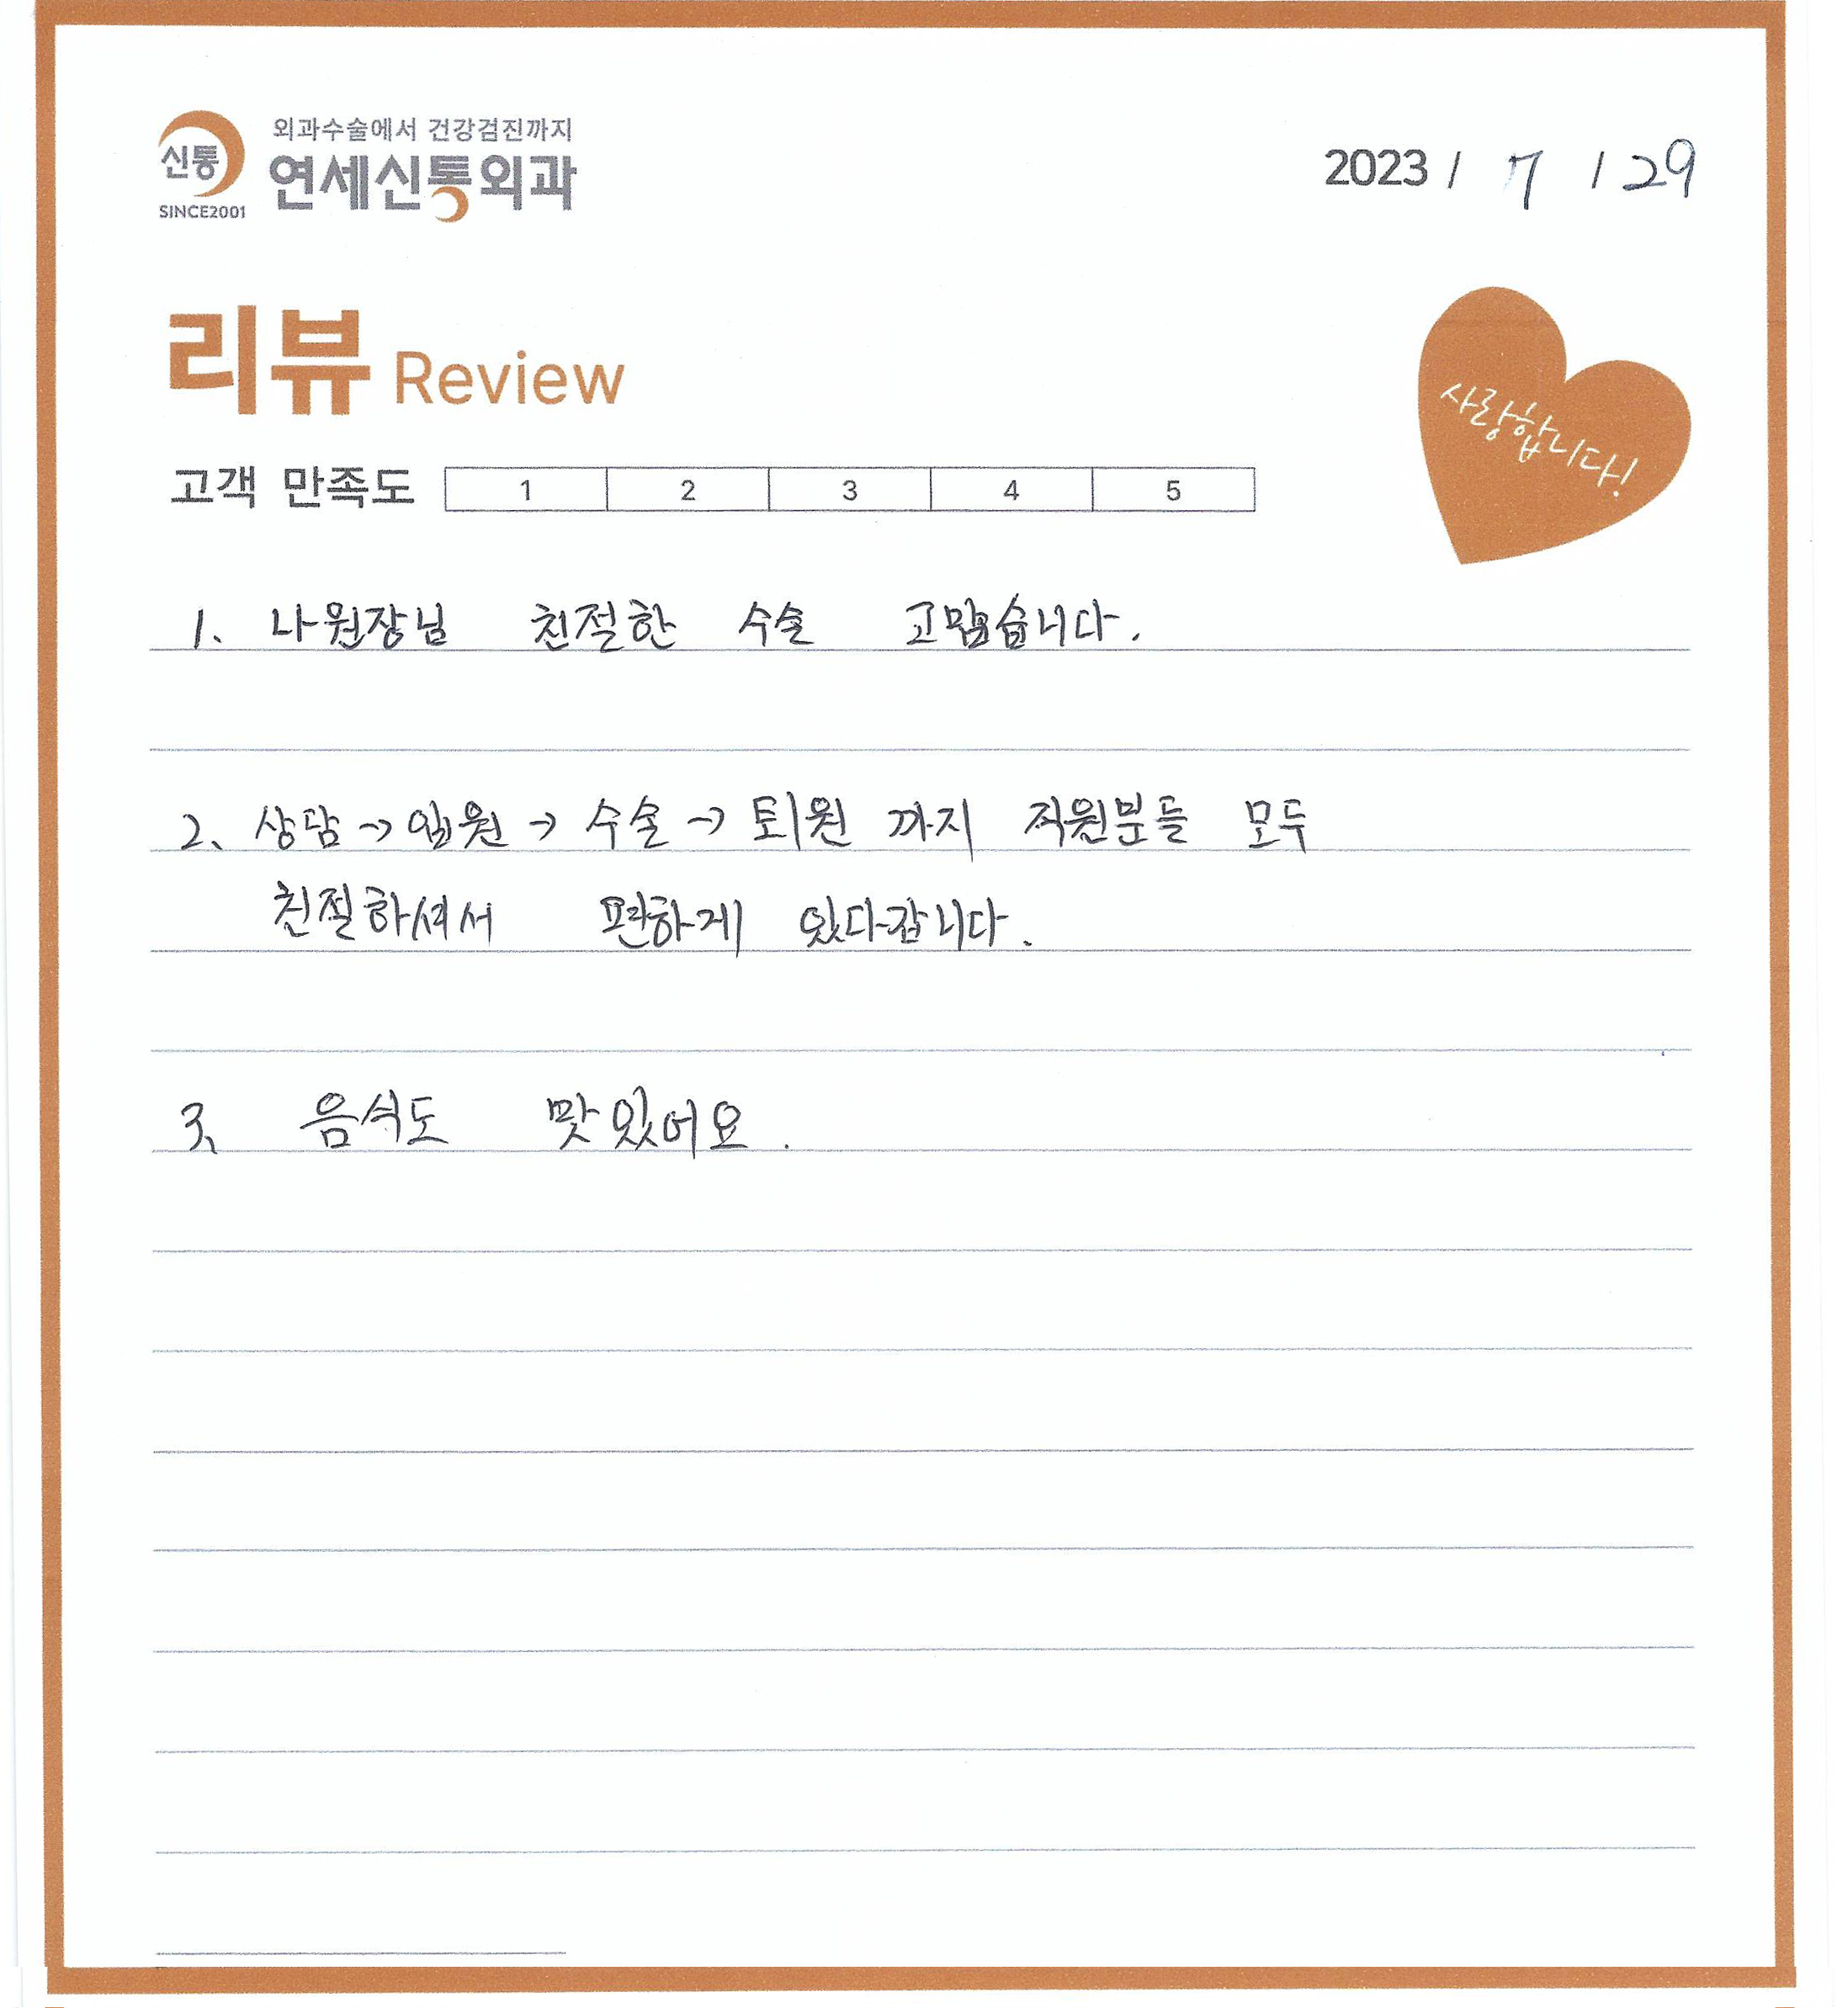 외과수술에서 건강검진까지
신통 연세신통외과
SINCE2001
2023 / 7 / 29
리뷰 Review
사랑합니다!
고객 만족도 1 2 3 4 5
1. 나원장님 친절한 수술 고맙습니다.
2. 상담→입원→수술→퇴원 까지 직원분들 모두
친절하셔서 편하게 있다갑니다.
3. 음식도 맛있어요.